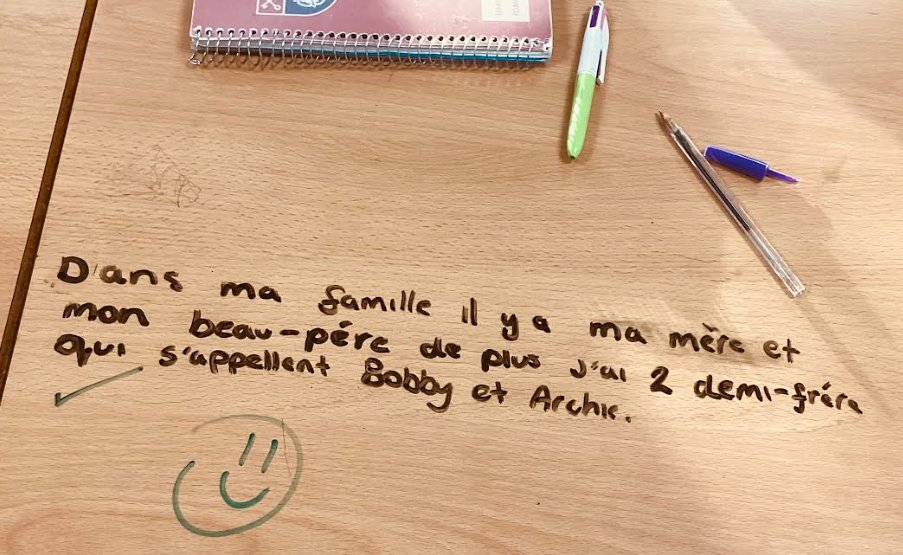 Dans ma famille il y a ma mère et
mon beau-pére de plus J'ai 2 demi-fréra
qui s'appellent Bobby et Archie.